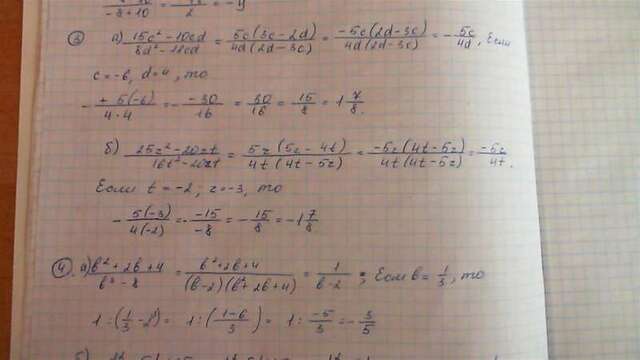 -8+10 2 = -4
③ а) 15c² - 10cd / 8d² - 12cd = 5c(3c - 2d) / 4d(2d - 3c) = -5c(2d - 3c) / 4d(2d - 3c) = - 5c / 4d, Если
c = -6, d = 4, то
- + 5(-6) / 4·4 = - -30 / 16 = 30 / 16 = 15 / 8 = 1 7/8.
б) 25z² - 20zt / 16t² - 20zt = 5z(5z - 4t) / 4t(4t - 5z) = -5z(4t - 5z) / 4t(4t - 5z) = -5z / 4t.
Если t = -2; z = -3, то
- 5(-3) / 4(-2) = - -15 / -8 = - 15 / 8 = -1 7/8
④ а) b² + 2b + 4 / b³ - 8 = b² + 2b + 4 / (b - 2)(b² + 2b + 4) = 1 / b - 2; Если b = 1/3, то
1 : (1/3 - 2) = 1 : (1 - 6 / 3) = 1 : -5 / 3 = - 3 / 5